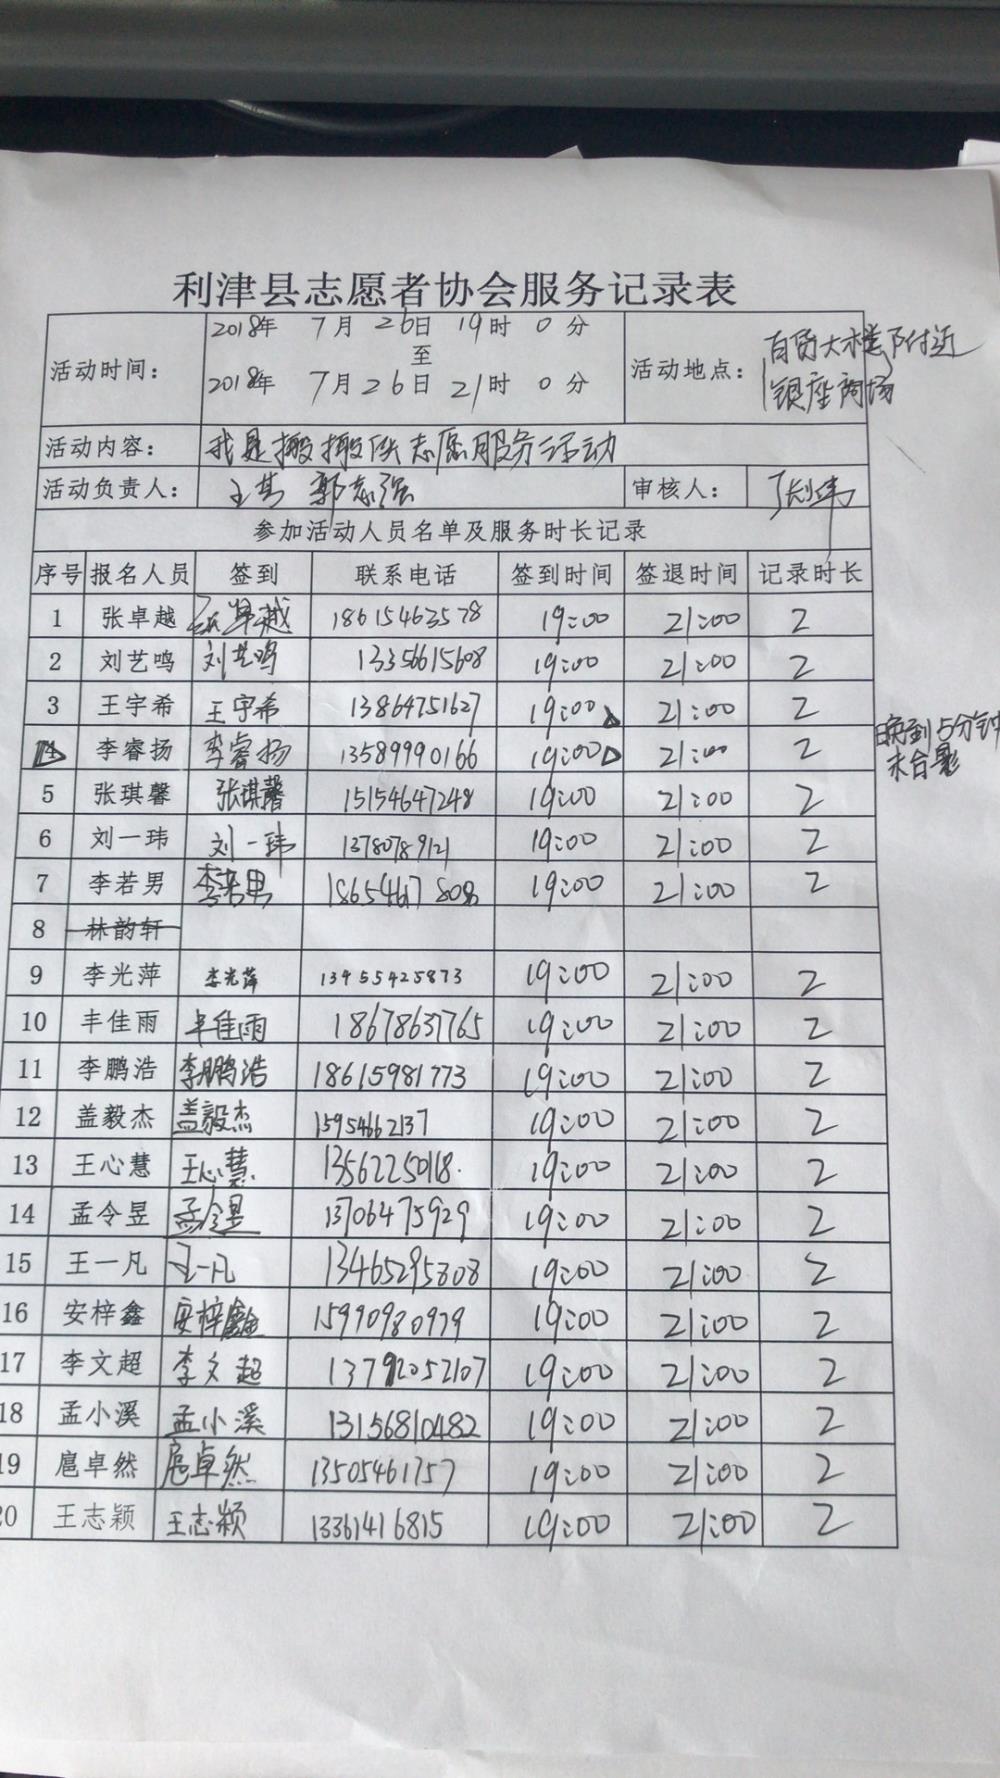 利津县志愿者协会服务记录表
活动时间： 2018年 7月 26日 19时 0分 至 2018年 7月 26日 21时 0分 活动地点： 百货大楼附近 银座商场
活动内容： 我是搬搬侠志愿服务活动
活动负责人： 王其 郭志强 审核人： 张炜
参加活动人员名单及服务时长记录
序号 报名人员 签到 联系电话 签到时间 签退时间 记录时长
1 张卓越 张卓越 18615463578 19:00 21:00 2
2 刘艺鸣 刘艺鸣 13356615608 19:00 21:00 2
3 王宇希 王宇希 13864751627 19:00 21:00 2
4 李睿扬 李睿扬 13589990166 19:00 21:00 2 晚到15分钟 未合影
5 张琪馨 张琪馨 15154647248 19:00 21:00 2
6 刘一玮 刘一玮 13780789121 19:00 21:00 2
7 李若男 李若男 19:00 21:00 2
8 林韵轩
9 李光萍 李光萍 13455425873 19:00 21:00 2
10 丰佳雨 丰佳雨 18678637765 19:00 21:00 2
11 李鹏浩 李鹏浩 18615981773 19:00 21:00 2
12 盖毅杰 盖毅杰 15954662137 19:00 21:00 2
13 王心慧 王心慧 13562250118 19:00 21:00 2
14 孟令昱 孟令昱 13706475929 19:00 21:00 2
15 王一凡 王一凡 13465295808 19:00 21:00 2
16 安梓鑫 安梓鑫 15990980979 19:00 21:00 2
17 李文超 李文超 13792052107 19:00 21:00 2
18 孟小溪 孟小溪 13156810482 19:00 21:00 2
19 扈卓然 扈卓然 13505461757 19:00 21:00 2
20 王志颖 王志颖 13361416815 19:00 21:00 2